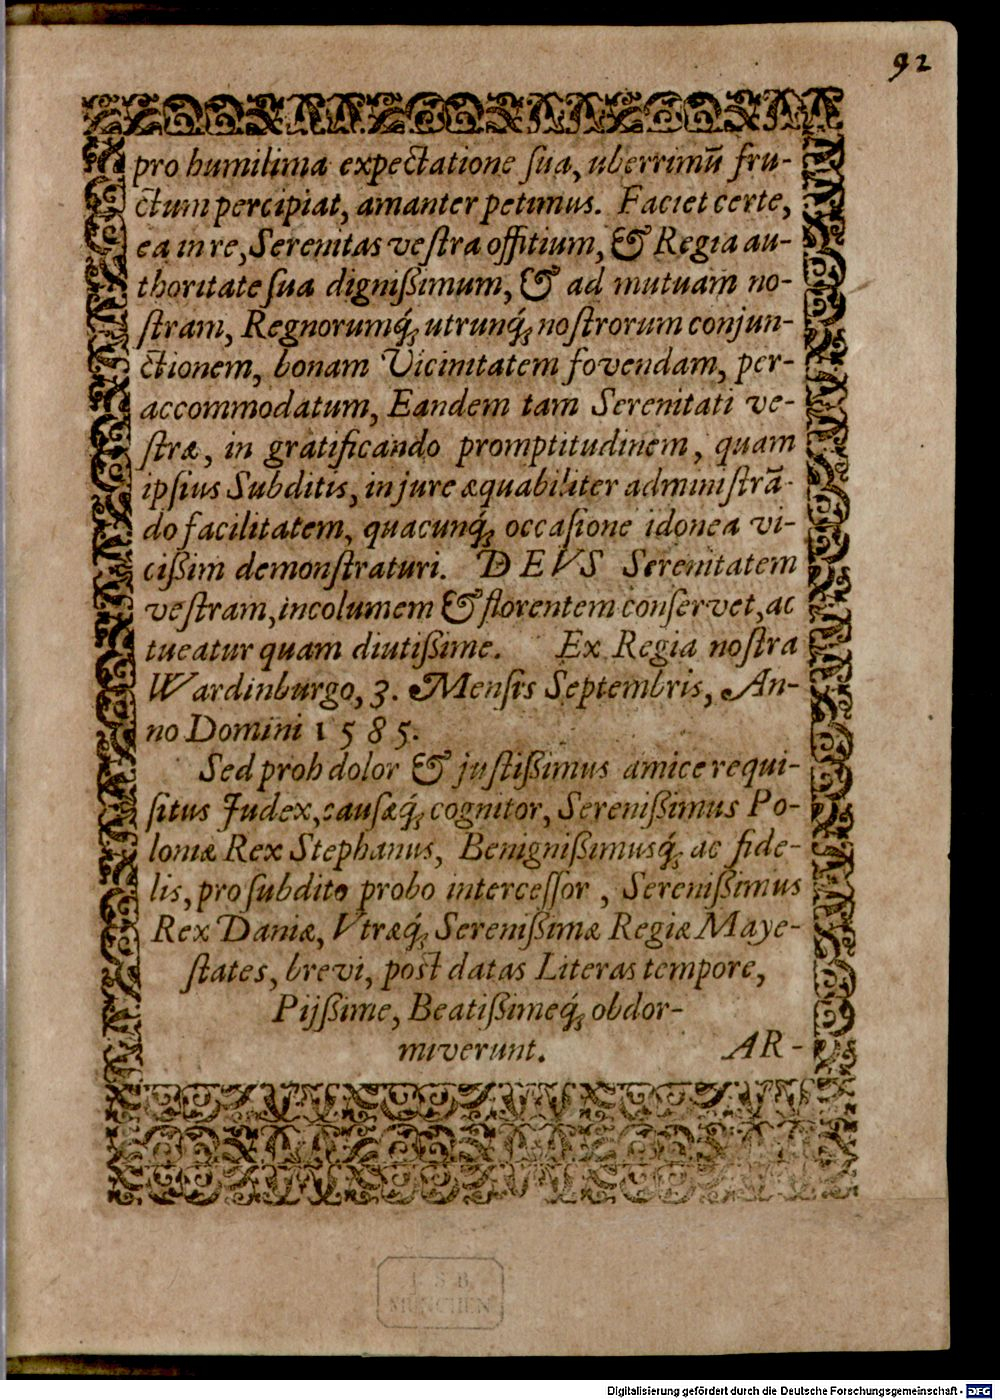 92
pro humilima expectatione sua, uberrimū fru-
ctum percipiat, amanter petimus. Faciet certe,
ea in re, Serenitas vestra offitium, & Regia au-
thoritate sua dignißimum, & ad mutuam no-
stram, Regnorumq́; utrunq́; nostrorum conjun-
ctionem, bonam Vicinitatem fovendam, per-
accommodatum, Eandem tam Serenitati ve-
stræ, in gratificando promptitudinem, quam
ipsius Subditis, in jure æquabiliter administrā-
do facilitatem, quacunq́; occasione idonea vi-
cißim demonstraturi. DEVS Serenitatem
vestram, incolumem & florentem conservet, ac
tueatur quam diutißime. Ex Regia nostra
Wardinburgo, 3. Mensis Septembris, An-
no Domini 1585.
Sed proh dolor & justißimus amice requi-
situs Judex, causæq́; cognitor, Serenißimus Po-
loniæ Rex Stephanus, Benignißimusq́; ac fide-
lis, pro subdito probo intercessor, Serenißimus
Rex Daniæ, Vtræq́; Serenißimæ Regiæ Maye-
states, brevi, post datas Literas tempore,
Pijßime, Beatißimeq́; obdor-
miverunt.
AR-
B. S. B.
MÜNCHEN
Digitalisierung gefördert durch die Deutsche Forschungsgemeinschaft - DFG